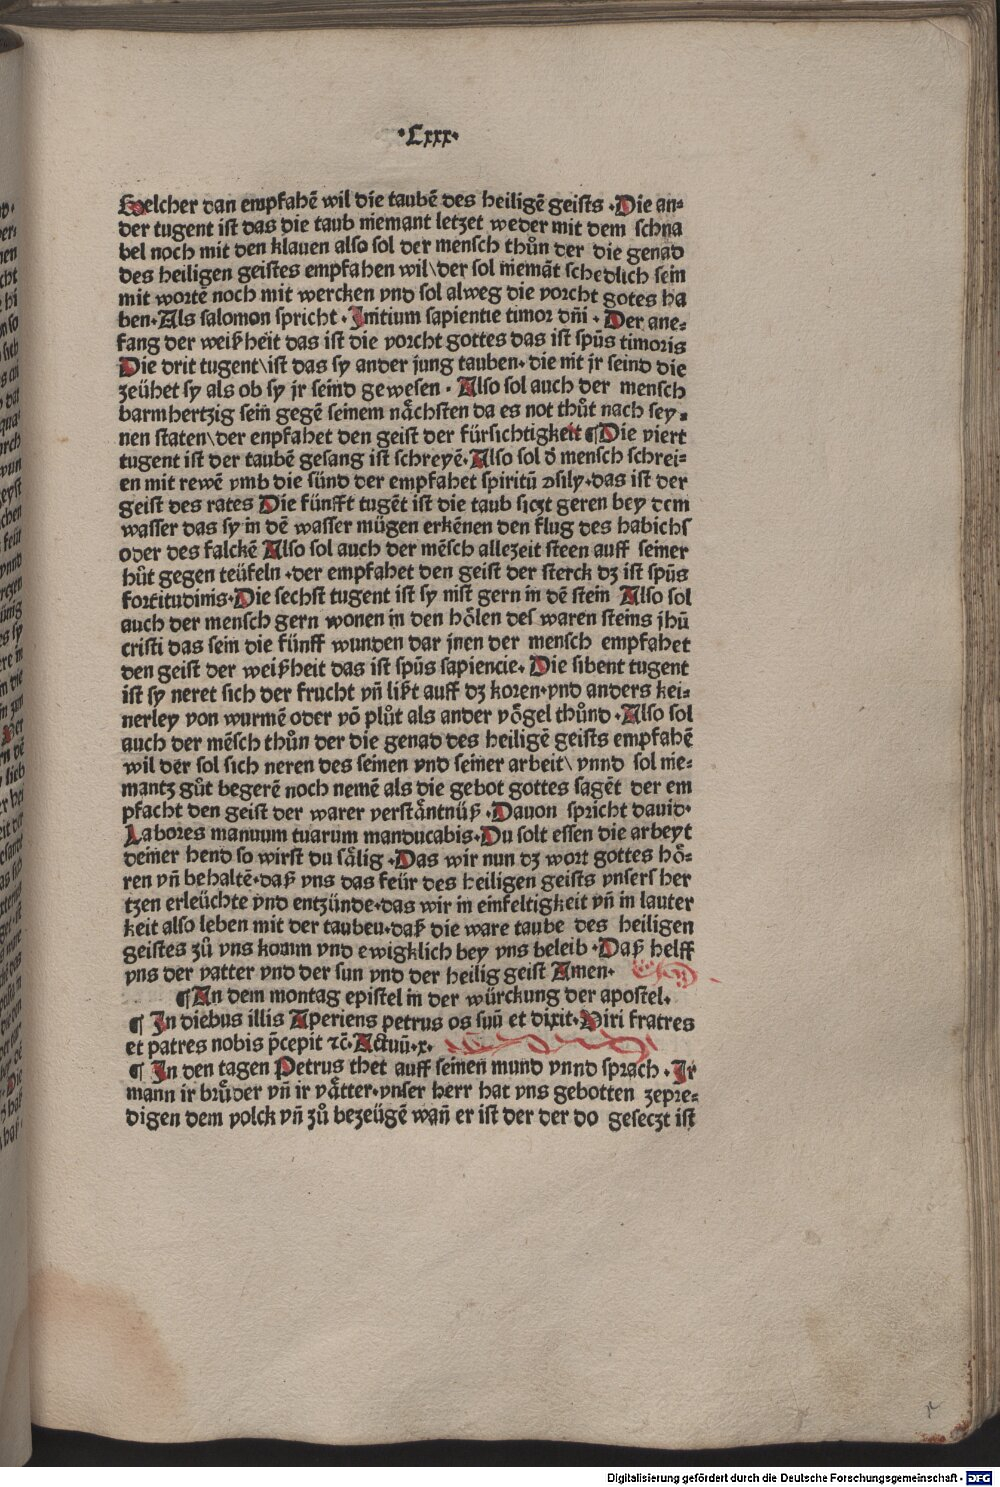 ·Cxxx·
Welcher dan empfahē wil die taubē des heiligē geists ·Die an=
der tugent ist das die taub niemant letzet weder mit dem schna
bel noch mit den klauen also sol der mensch thůn der die genad
des heiligen geistes empfahen wil\der sol niemāt schedlich sein
mit wortē noch mit wercken vnd sol alweg die vorcht gotes ha
ben·Als salomon spricht ·Initium sapientie timor dn̄i · Der ane=
fang der weißheit das ist die vorcht gottes das ist spūs timoris
Die drit tugent\ist das sy ander jung tauben· die nit jr seind die
zeühet sy als ob sy jr seind gewesen · Also sol auch der mensch
barmhertzig sein gegē seinem nåchsten da es not thůt nach sey=
nen staten\der enpfahet den geist der fürsichtigkeit ¶Die viert
tugent ist der taubē gesang ist schreyē·Also sol d̄ mensch schrei=
en mit rewē vmb die sünd der empfahet spiritū ꝯsily·das ist der
geist des rates Die fünfft tugēt ist die taub siczt geren bey dem
wasser das sy in dē wasser mügen erkēnen den flug des habichs
oder des falckē Also sol auch der mēsch allezeit steen auff seiner
hůt gegen teüfeln ·der empfahet den geist der sterck dz ist spūs
fortitudinis·Die sechst tugent ist sy nist gern in dē stein Also sol
auch der mensch gern wonen in den hölen des waren steins jhū
cristi das sein die fünff wunden dar jnen der mensch empfahet
den geist der weißheit das ist spūs sapiencie· Die sibent tugent
ist sy neret sich der frucht vn̄ lißt auff dz koren·vnd anders kei=
nerley von wurmē oder vō plůt als ander vögel thůnd ·Also sol
auch der mēsch thůn der die genad des heiligē geists empfahē
wil der sol sich neren des seinen vnd seiner arbeit\ vnnd sol nie=
mantz gůt begerē noch nemē als die gebot gottes sagēt der em
pfacht den geist der warer verståntnüß ·Dauon spricht dauid·
Labores manuum tuarum manducabis·Du solt essen die arbeyt
deiner hend so wirst du sålig ·Das wir nun dz wort gottes hö=
ren vn̄ behaltē·daß vns das feür des heiligen geists vnsers her
tzen erleüchte vnd entzünde·das wir in einfeltigkeit vn̄ in lauter
keit also leben mit der taubeu·daß die ware taube des heiligen
geistes zů vns komm vnd ewigklich bey vns beleib ·Daß helff
vns der vatter vnd der sun vnd der heilig geist Amen·
¶An dem montag epistel in der würckung der apostel·
¶ In diebus illis Aperiens petrus os suū et dixit·Viri fratres
et patres nobis p̄cepit ⁊c̄·Actuū·x·
¶ In den tagen Petrus thet auff seinen mund vnnd sprach ·Ir
mann ir brůder vn̄ ir våtter·vnser herr hat vns gebotten zepre=
digen dem volck vn̄ zů bezeügē wan̄ er ist der der do geseczt ist
Digitalisierung gefördert durch die Deutsche Forschungsgemeinschaft - DFG